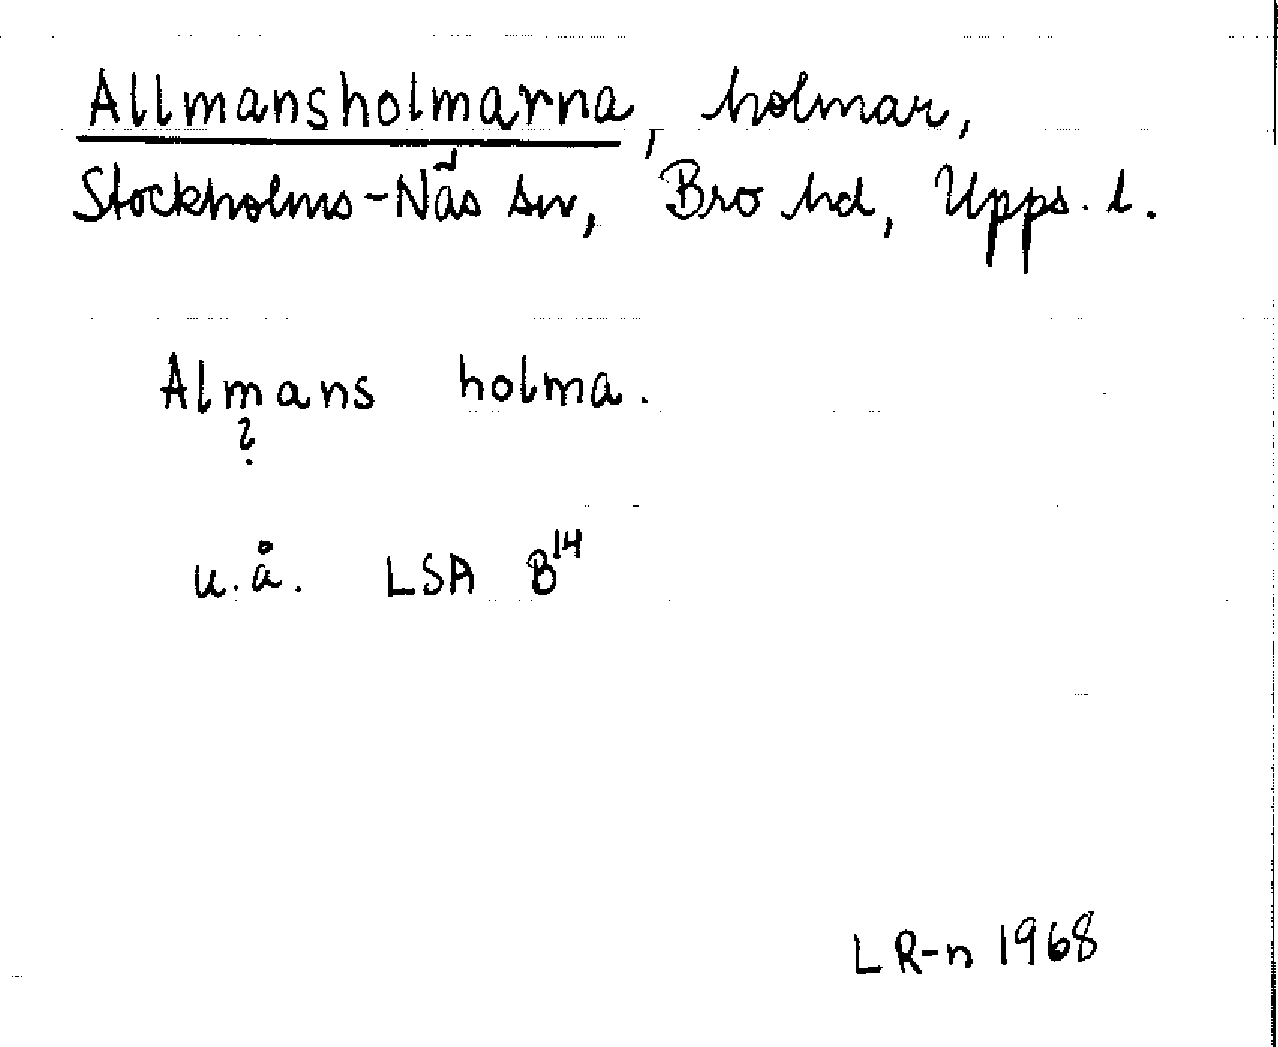 Allmansholmarna, holmar,
Stockholms-Näs sn, Bro hd, Upps. l.
Almans holma.
?
u.å. LSA B¹⁴
LR-n 1968